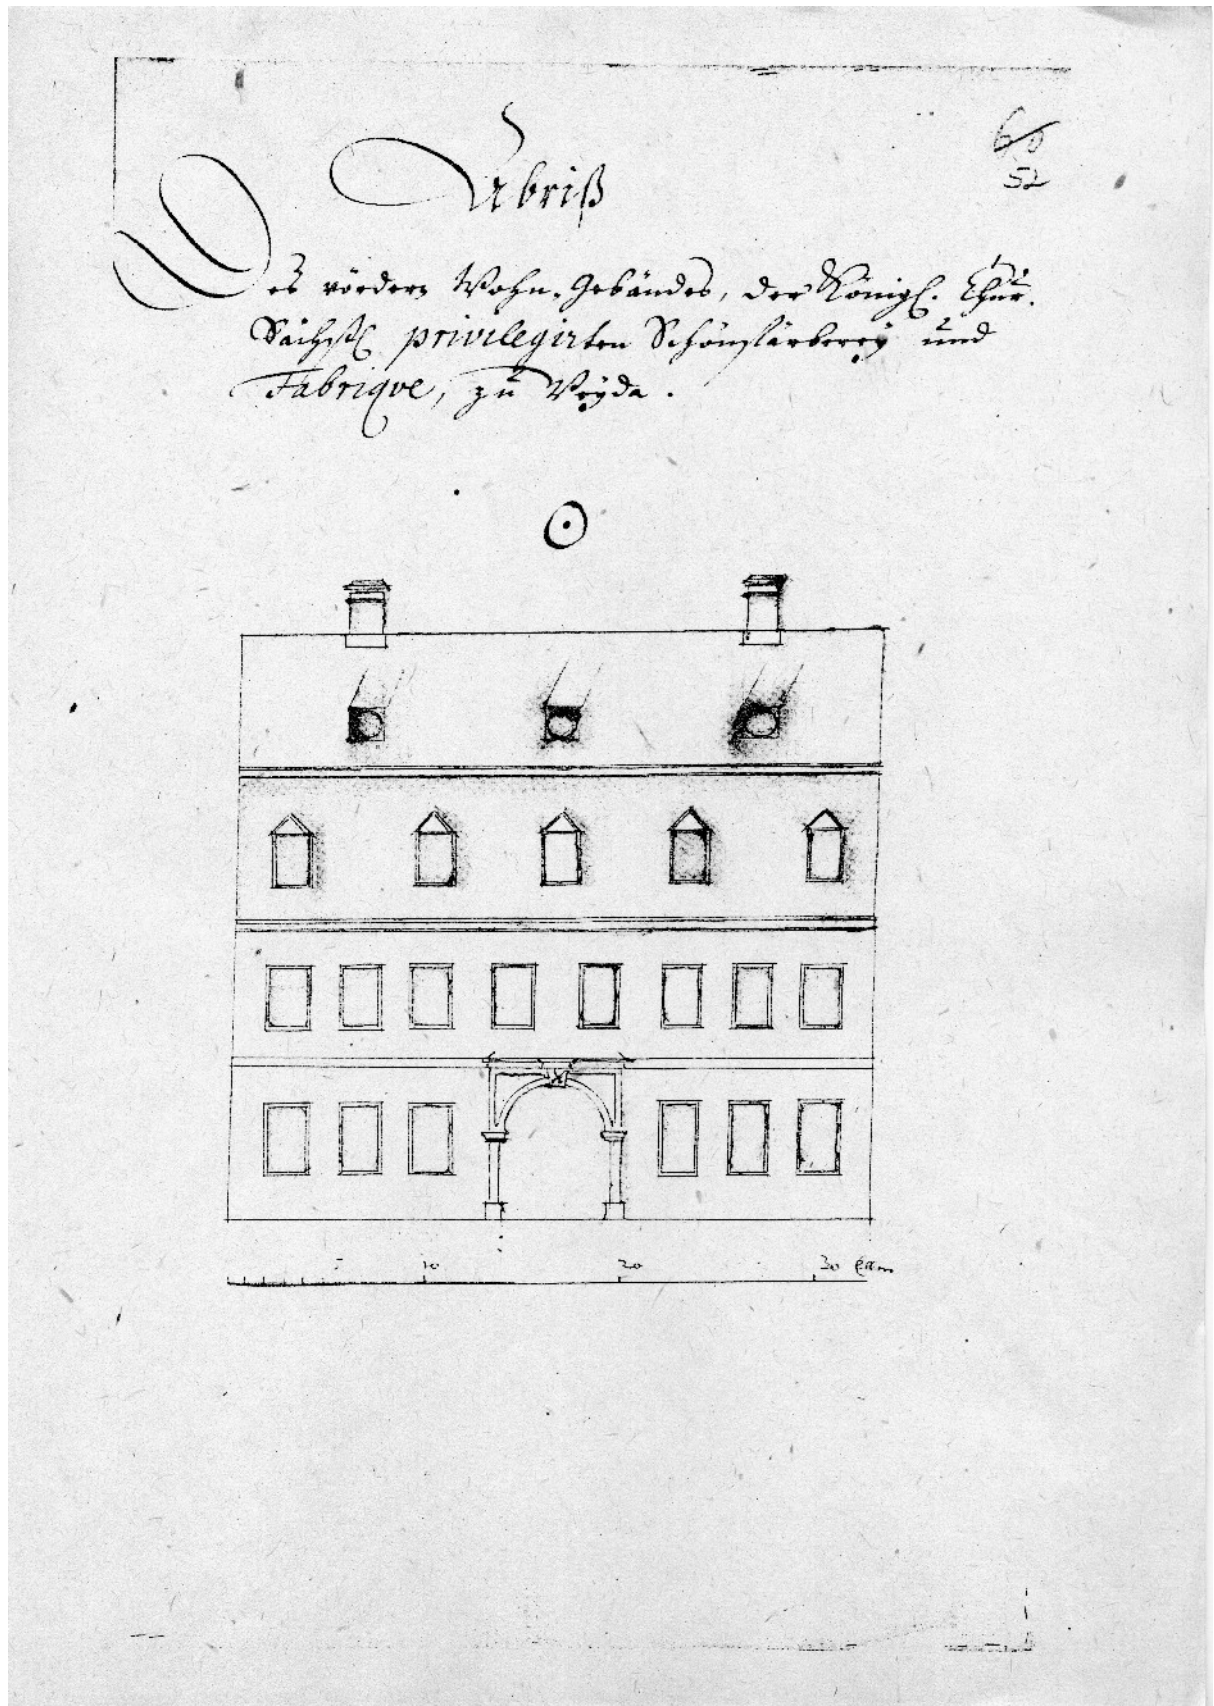 60
52
Abriß
Des vördern Wohn-Gebäudes, der Königl. Chur.
Sächß. privilegirten Schönfärberey und
Fabrique, zu Weyda.
10 20 30 Ellen